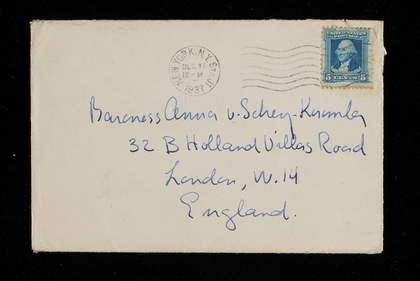 NEW YORK, N.Y.
DEC 11
1937
UNITED STATES
POSTAGE
5 CENTS 5
Baroness Anna v.
32 B Holland Villas Road
London, W.14
England.